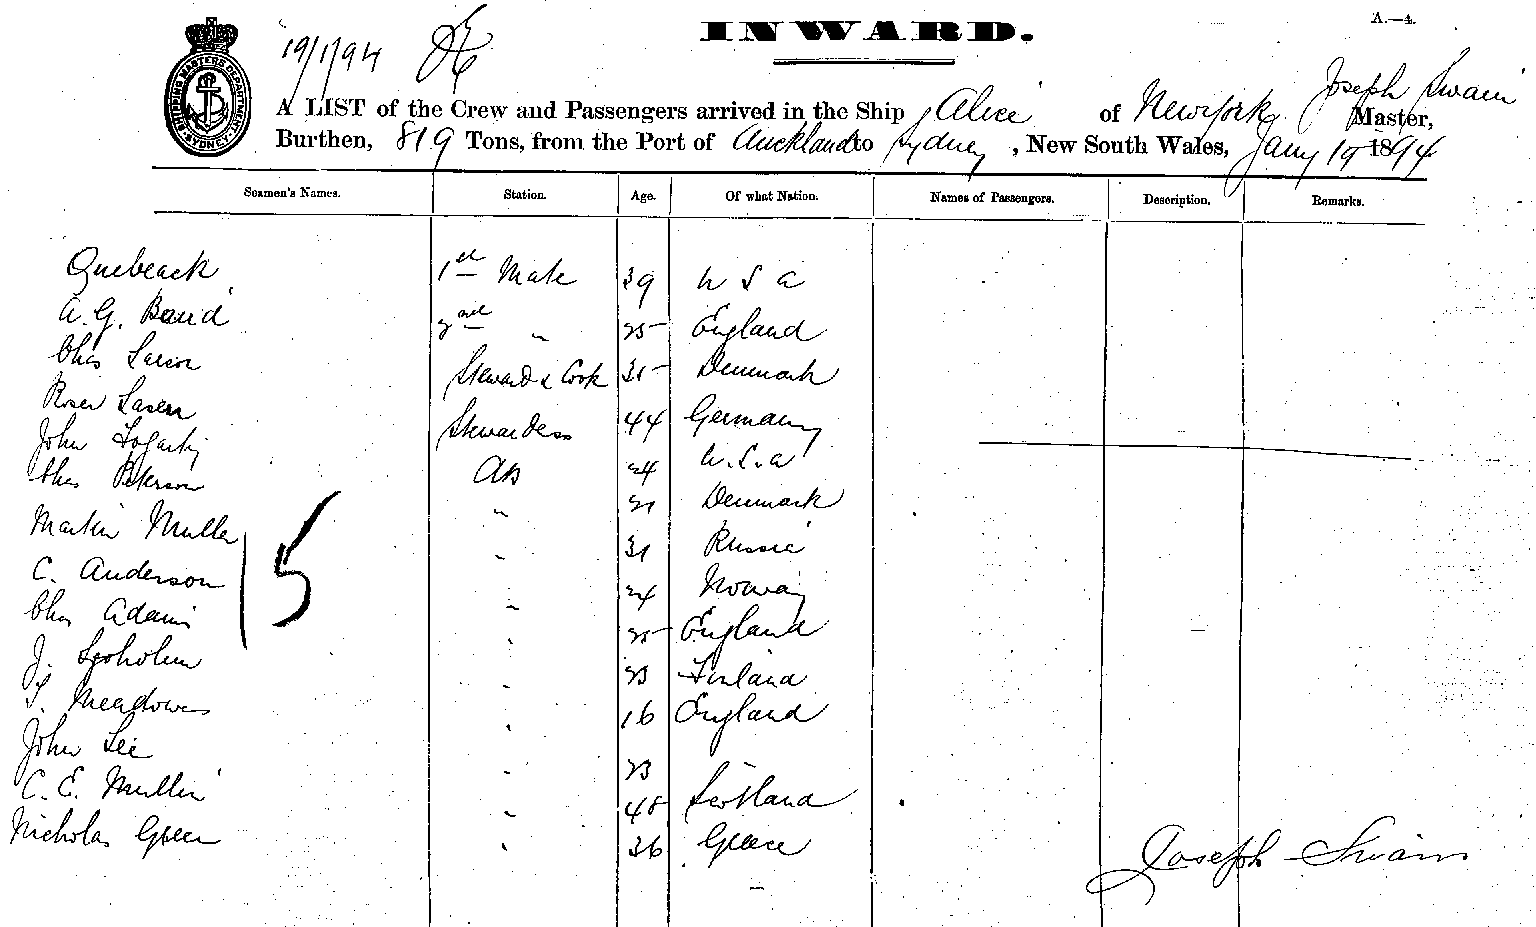 A.—4.
INWARD.
19/1/94
SHIPPING MASTERS DEPARTMENT SYDNEY
Joseph Swain
A LIST of the Crew and Passengers arrived in the Ship Alice of New York Master,
Burthen, 819 Tons, from the Port of Auckland to Sydney, New South Wales, Jany 19 1894
Seamen's Names. Station. Age. Of what Nation. Names of Passengers. Description. Remarks.
1st Mate 39 U S A
A. G. Baird 2nd " 25 England
Chas Larson Steward & Cook 35 Denmark
Stewardess 44 Germany
John Fogarty AB 24 U.S.A
Chas Peterson " 21 Denmark
Martin Muller " 31 Russia
C. Anderson " 24 Norway
Chas Adams " 25 England
J. " 23 Finland
T. Meadows " 16 England
John Lee " 23
C. E. Mullin " 48 Scotland
Nicholas Green " 36 Greece
5
Joseph Swain